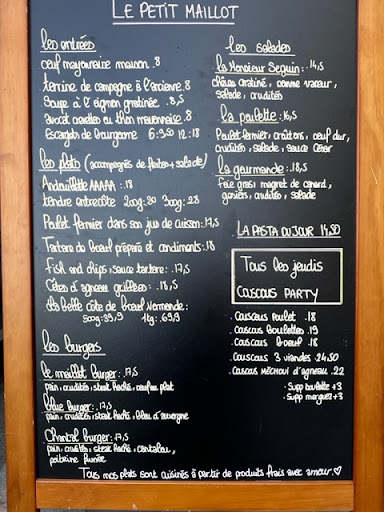 LE PETIT MAILLOT
Les entrées
oeuf mayonnaise maison .8
terrine de campagne à l'ancienne 8
Soupe à l'oignon gratinée .8,5
avocat crevettes ou thon mayonnaise 8
Escargot de bourgogne 6:9,50 12:18
Les plats (accompagnés de frites + salade)
Andouillette AAAAA :.18
tendre entrecôte 200g:20 300g:28
Poulet fermier dans son jus de cuisson:17,5
Tartare de boeuf préparé et condiments:18
Fish and chips, sauce tartare :.17,5
Côtes d'agneau grillées :.18,5
La belle côte de boeuf Normande:
500g:39,9 1kg:.69,9
Les burgers
Le maillot burger:17,5
pain, crudités, steak haché, oeuf au plat
blue burger:17,5
pain, crudités, steak haché, bleu d'auvergne
Chantal burger:17,5
pain, crudités, steak haché, cantal,
poitrine fumée
Les salades
La Monsieur Seguin:.14,5
chèvre gratiné, pomme vapeur,
salade, crudités
La poulette:.16,5
Poulet fermier, croûtons, oeuf dur,
crudités, salade, sauce César
La gourmande:.18,5
Foie gras, magret de canard,
gésiers, crudités, salade
LA PASTA DU JOUR 14,50
Tous les jeudis
COUSCOUS PARTY
. COUSCOUS POULET .18
. COUSCOUS BOULETTES .19
. COUSCOUS BOEUF .18
. COUSCOUS 3 VIANDES .24,50
. COUSCOUS MÉCHOUI D'AGNEAU .22
. SUPP BOULETTE +3
. SUPP MERGUEZ +3
Tous nos plats sont cuisinés à partir de produits frais avec amour.♡